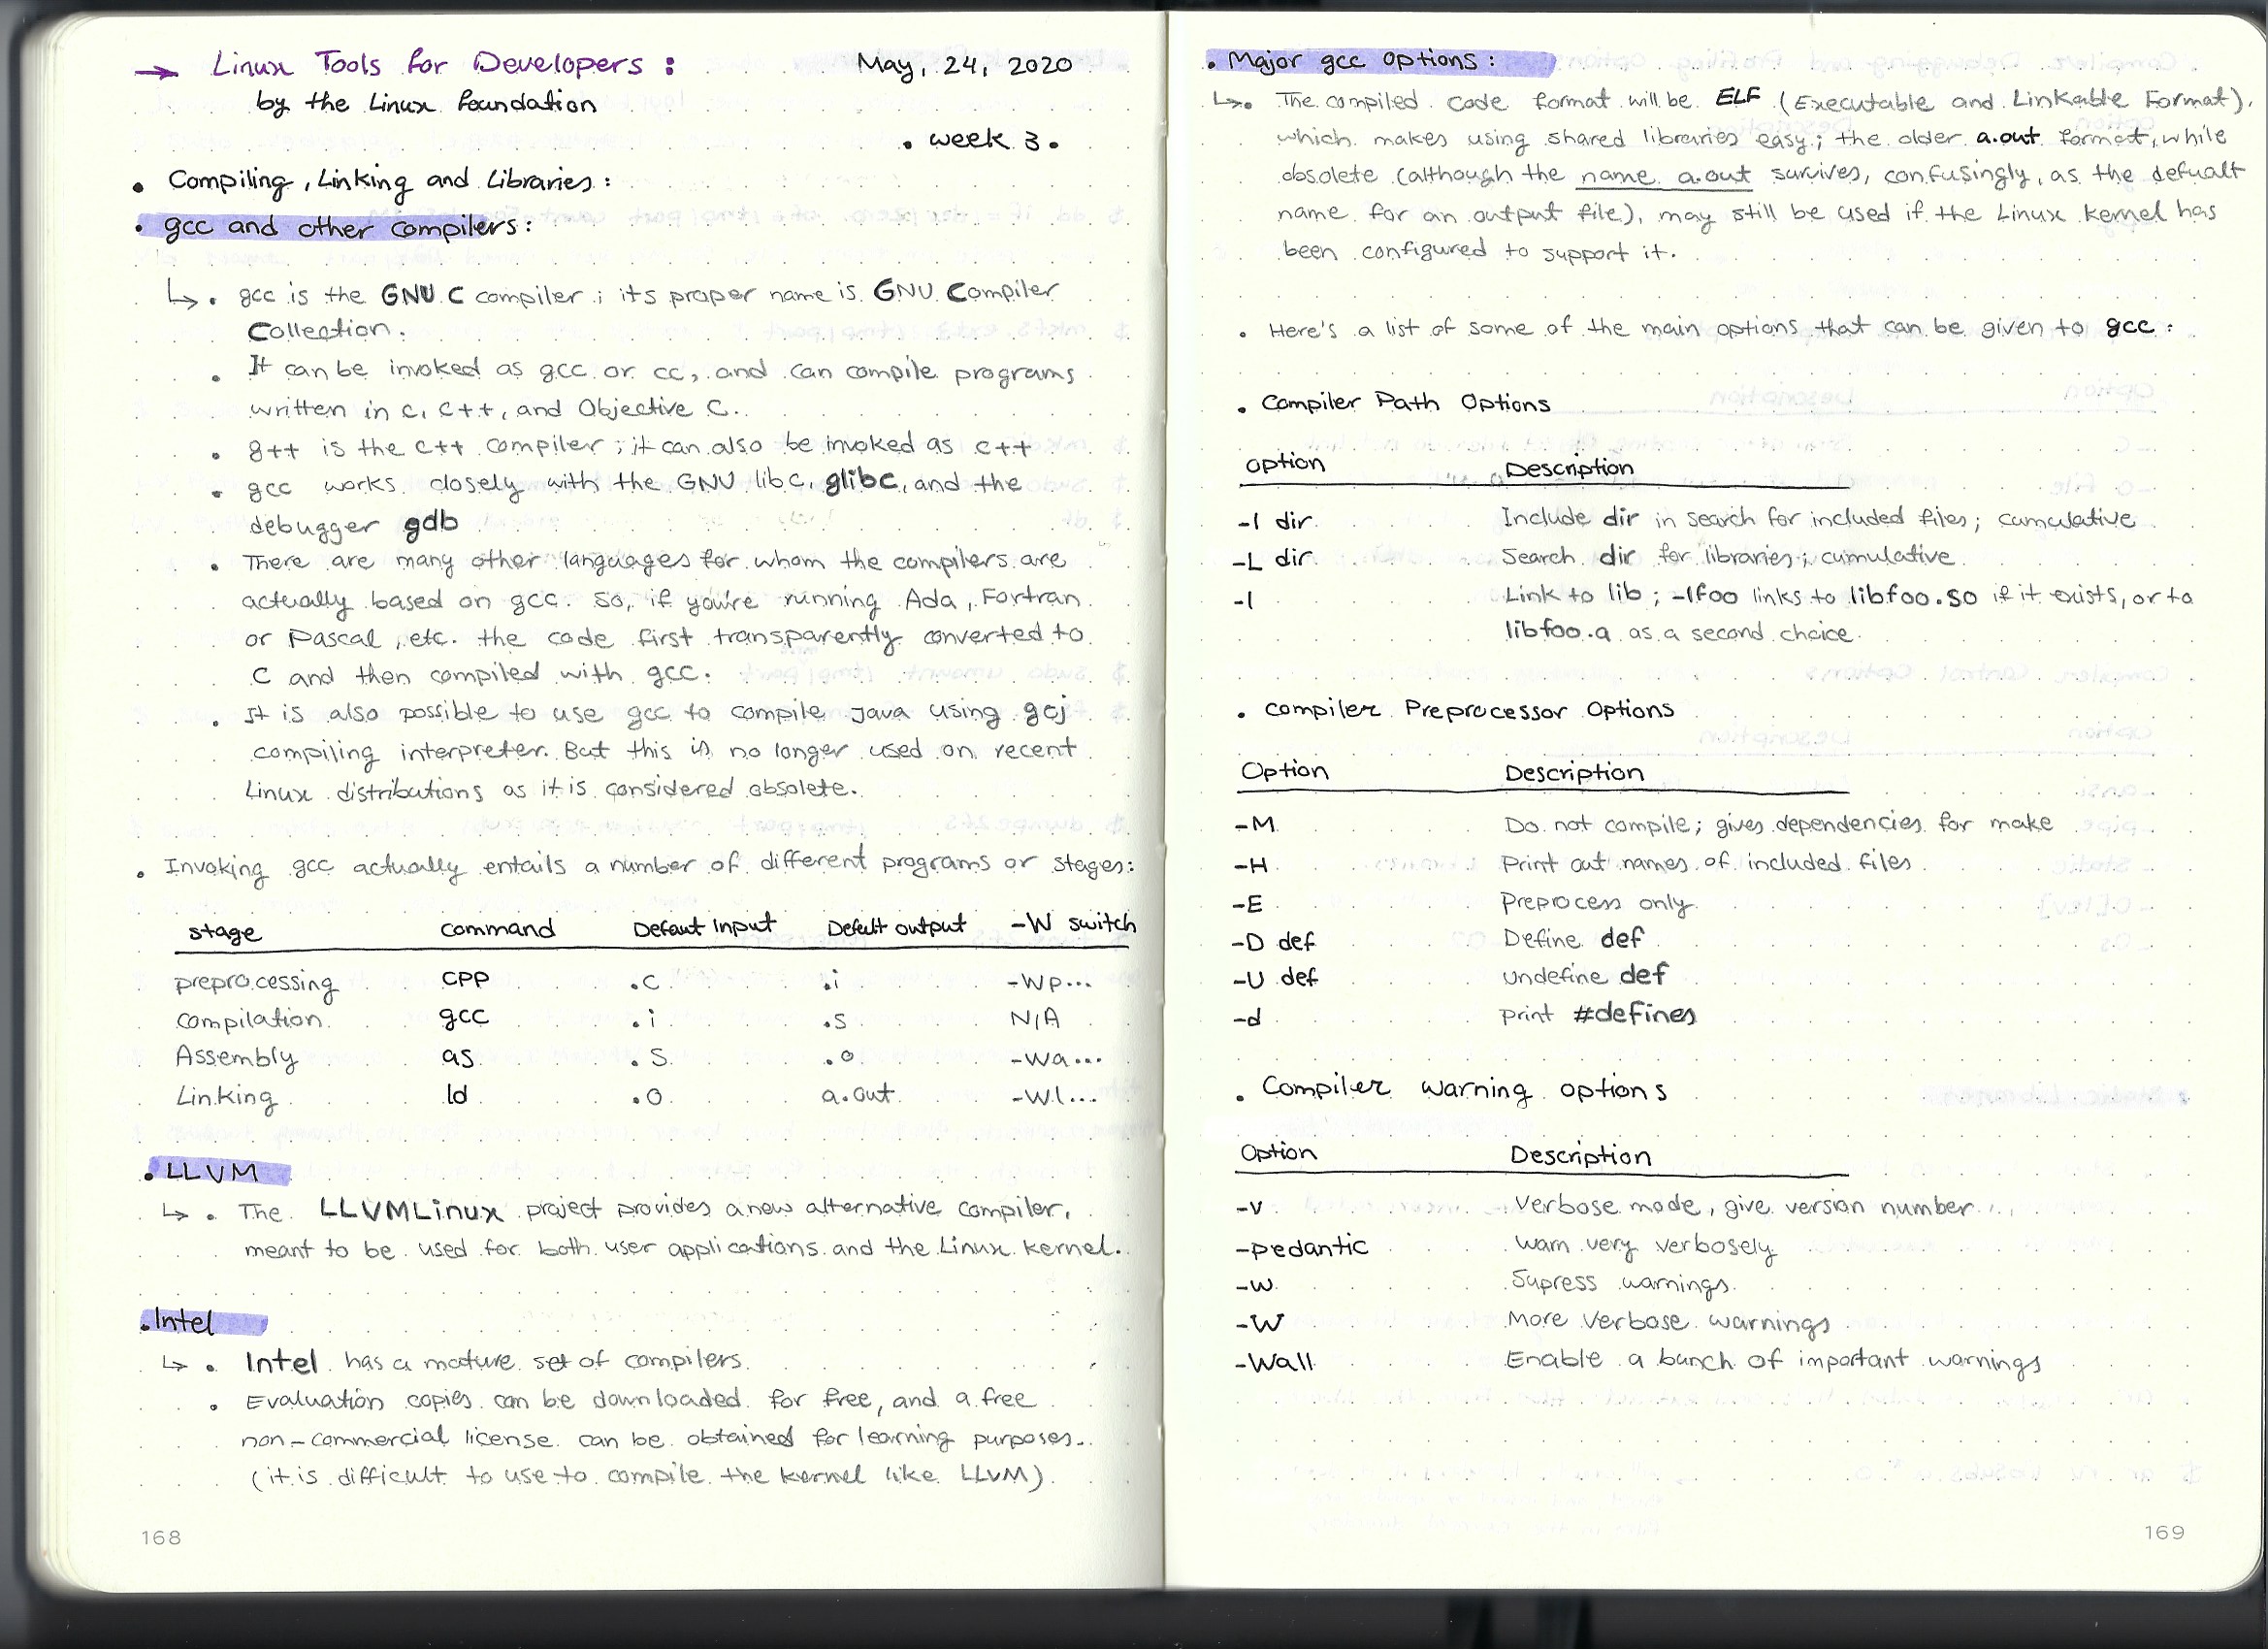 → Linux Tools for Developers : May, 24, 2020
by the Linux Foundation
. week 3.
• Compiling, Linking and Libraries :
• gcc and other compilers :
↳ . gcc is the GNU C compiler ; its proper name is GNU Compiler
Collection.
. It can be invoked as gcc or cc, and can compile programs
written in c, c++, and Objective C.
. g++ is the c++ compiler ; it can also be invoked as c++
. gcc works closely with the GNU libc, glibc, and the
debugger gdb
. There are many other languages for whom the compilers are
actually based on gcc. So, if you're running Ada, Fortran
or Pascal, etc. the code first transparently converted to
C and then compiled with gcc.
. It is also possible to use gcc to compile Java using gcj
compiling interpreter. But this is no longer used on recent
Linux distributions as it is considered obsolete.
. Invoking gcc actually entails a number of different programs or stages:
stage command Defaut input Defult output -W switch
preprocessing cpp .c .i -Wp...
compilation gcc .i .s N/A
Assembly as .s .o -Wa...
Linking ld .o a.out -Wl...
. LLVM
↳ . The LLVMLinux project provides a new alternative compiler,
meant to be used for both user applications and the Linux kernel.
. Intel
↳ . Intel has a mature set of compilers.
. Evaluation copies can be downloaded for free, and a free
non-commercial license can be obtained for learning purposes.
(it is difficult to use to compile the kernel like LLVM).
168
. Major gcc options :
↳. The compiled code format will be ELF (Executable and Linkable Format),
which makes using shared libraries easy; the older a.out format, while
obsolete (although the name a.out survives, confusingly, as the defualt
name for an output file), may still be used if the Linux kernel has
been configured to support it.
. Here's a list of some of the main options that can be given to gcc :
. Compiler Path Options
option Description
-I dir Include dir in search for included files; cumulative
-L dir Search dir for libraries; cumulative
-l Link to lib ; -lfoo links to libfoo.so if it exists, or to
libfoo.a as a second choice.
. compiler Preprocessor Options
Option Description
-M Do not compile; gives dependencies for make
-H Print out names of included files
-E Preprocess only
-D def Define def
-U def undefine def
-d print #defines
. Compiler warning options
Option Description
-v Verbose mode, give version number
-pedantic warn very verbosely
-w Supress warnings
-W More verbose warnings
-Wall Enable a bunch of important warnings
169